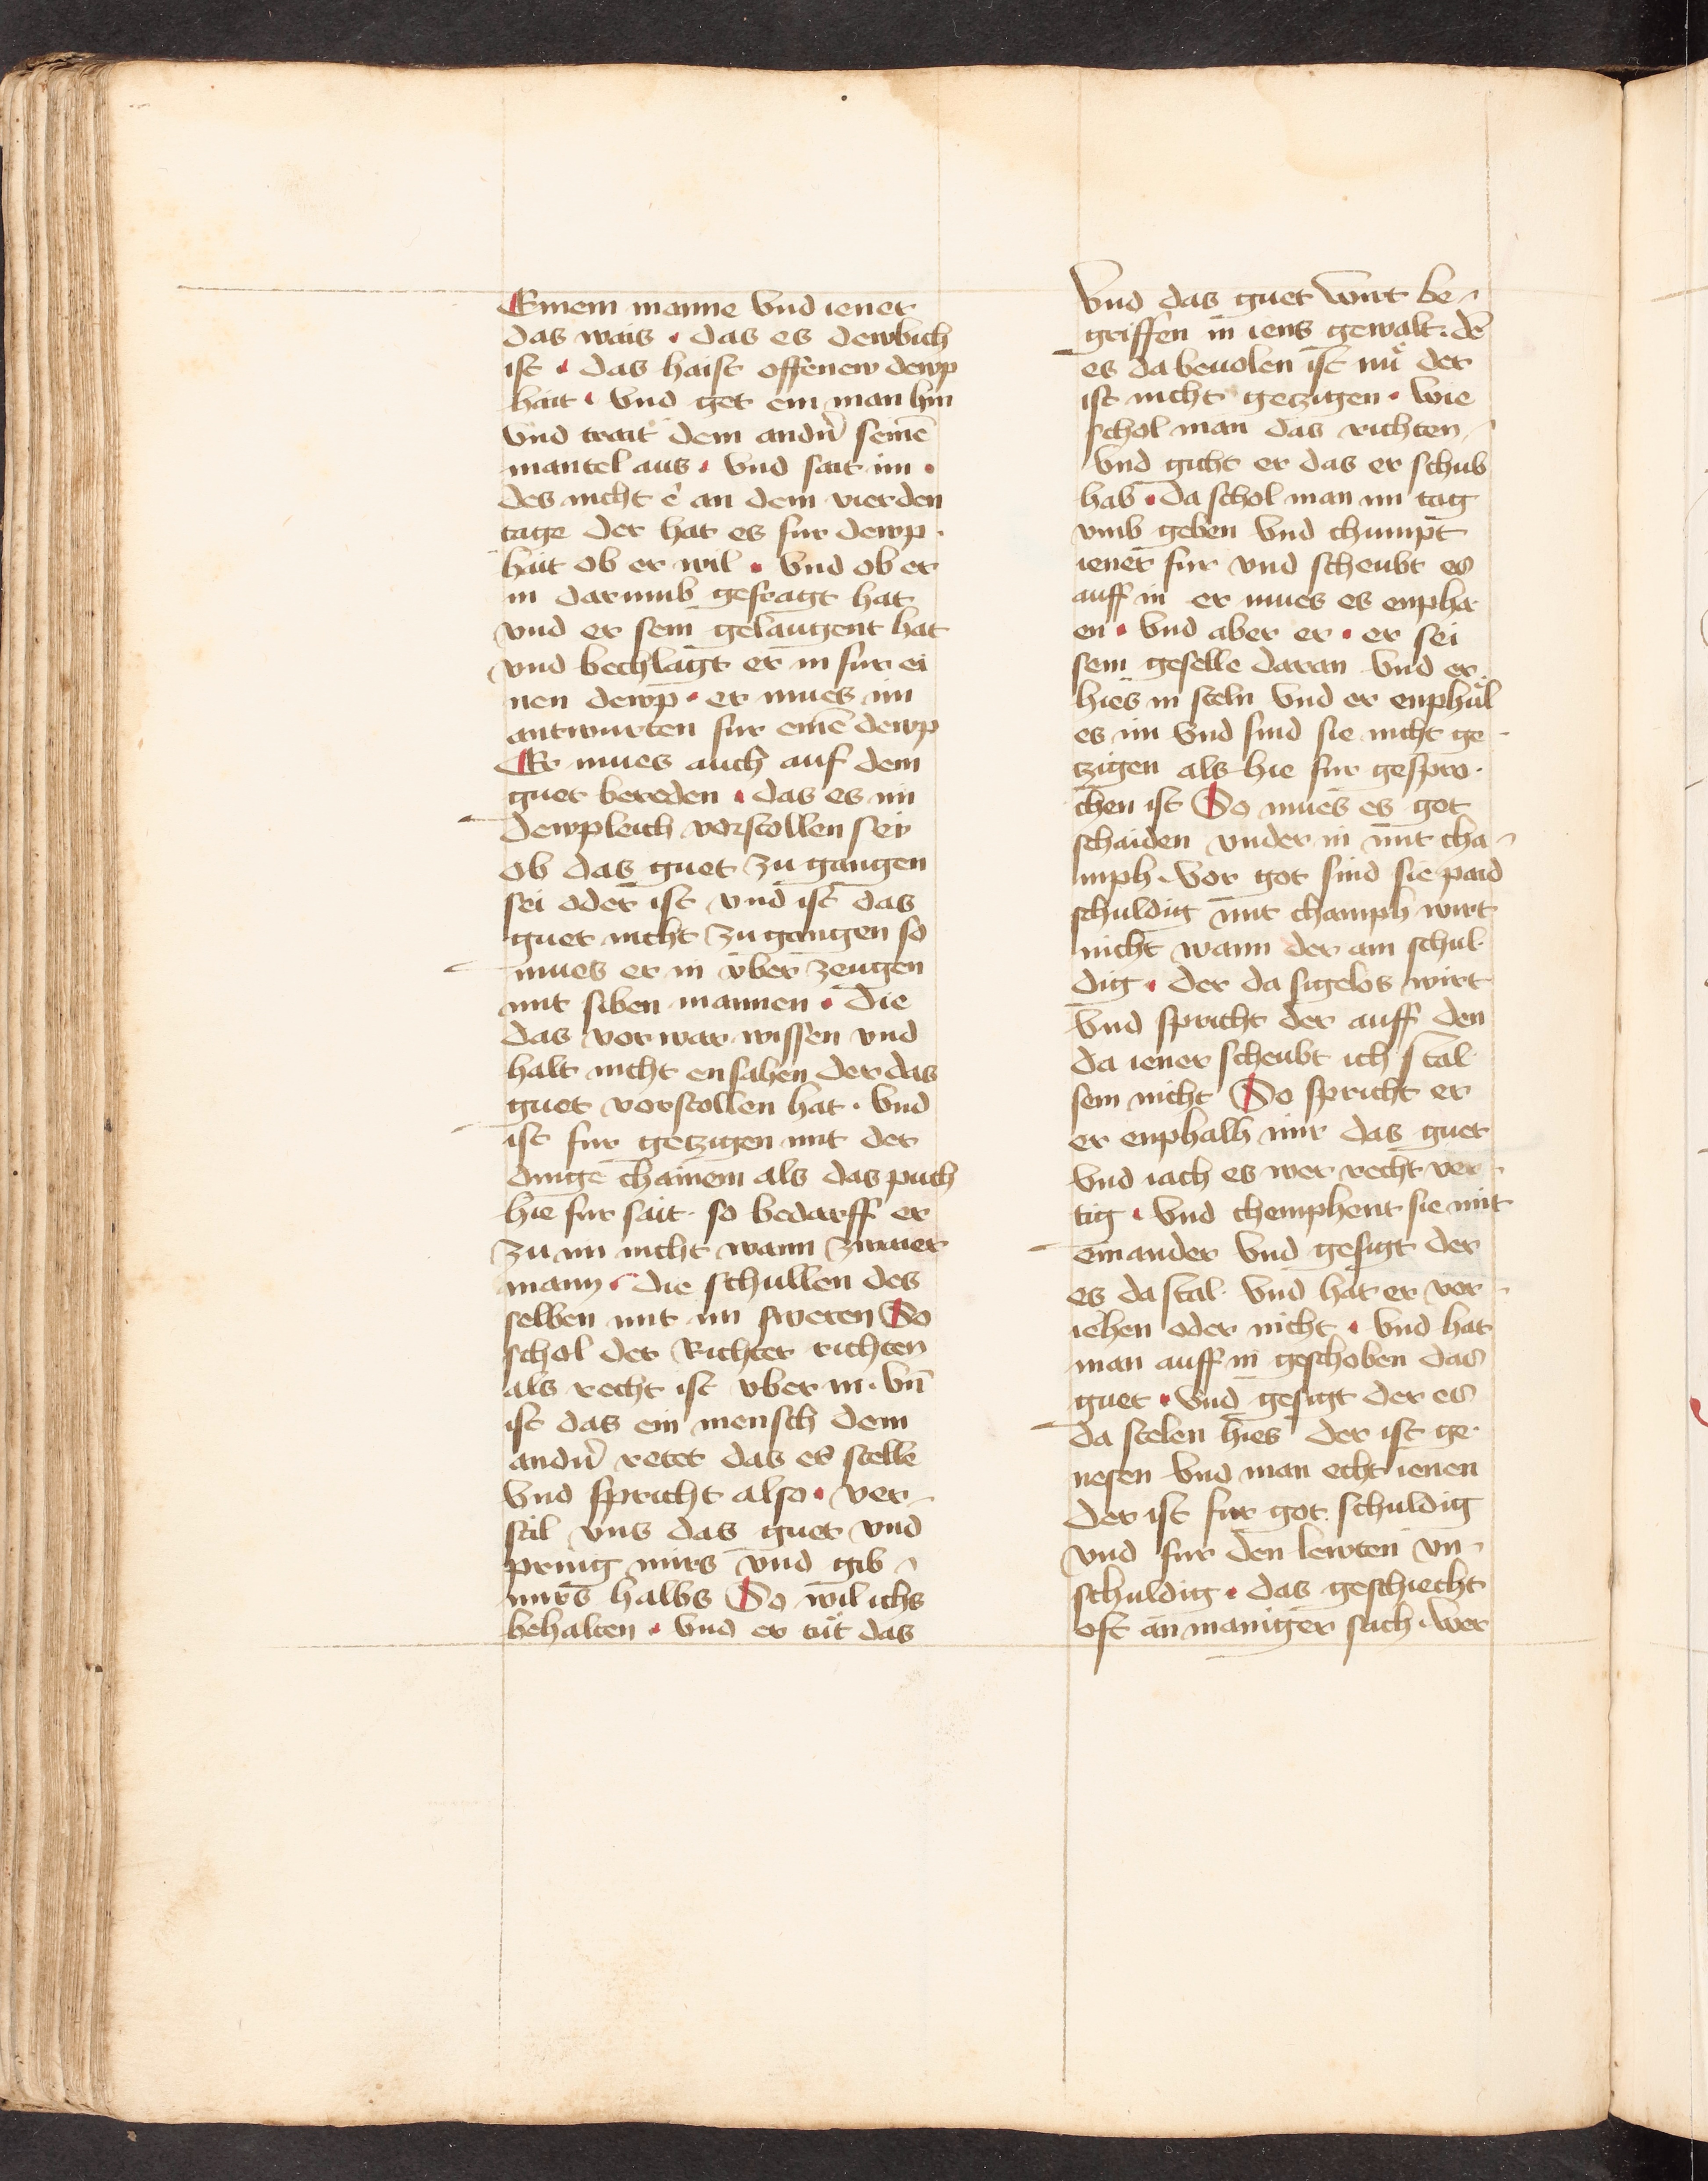 Einem manne vnd iener
das wais . das es dewbich
ist . das haist offenew dewp
hait . vnd get ein man hin
vnd trait dem andn̄ seinē
mantel aus . vnd sait im .
des nicht ê an dem vierden
tage der hat es fur dewp
hait ob er wil . vnd ob er
in darumb gefragt hat
vnd er sein gelaugent hat
vnd bechlagt er in fur ei
nen dewp . er mues im
antwurten fur einē dewp
Er mues auch auf dem
guet bereden . das es im
dewpleich verstollen sei
ob das guet zu gangen
sei oder ist vnd ist das
guet nicht zu gangen so
mues er in vber zeugen
mit siben mannen . die
das vor war wissen vnd
halt nicht ensahen der das
guet verstollen hat . vnd
ist fur getzigen mit der
dinge chainem als das puch
hie fur sait . so bedarff er
zu im nicht wann zwaier
mann . die schullen des
selben mit im sweren So
schol der Richter richten
als recht ist vber in . vn̄
ist das ein mensch dem
andn̄ retet das es stelle
vnd spricht also . ver-
stil vns das guet vnd
pring mirs vnd gib
mirs halbs So wil ichs
behalten . vnd er tut das
vnd das guet wirt be-
griffen in iens gewalt . dē
es da beuolen ist nu der
ist nicht getzigen . wie
schol man das richten
vnd gicht er das er schub
hab . da schol man im tag
vmb geben vnd chumpt
iener fur vnd scheubt es
auff in er mues es enpha
en . vnd aber er . er sei
sein geselle daran vnd er
hies in steln vnd er enphul
es im vnd sind sie nicht ge-
tzigen als hie fur gespro-
chen ist So mues es got
schaiden vnder in mit cha-
mph . vor got sind sie paid
schuldig mit champh wirt
nicht wann der ain schul-
dig . der da sigelos wirt
vnd spricht der auff den
da iener scheubt ich stal
sein nicht So spricht er
er enphalh mir das guet
vnd iach es wer recht ver-
tig . vnd chemphent sie mit
einander vnd gesigt der
es da stal . vnd hat er ver-
iehen oder nicht . vnd hat
man auff in geschoben das
guet . vnd gesigt der es
da stelen hies der ist ge-
nesen vnd man echt ienen
der ist fur got schuldig
vnd fur den lewten vn-
schuldig . das geschiecht
oft an maniger sach . wer